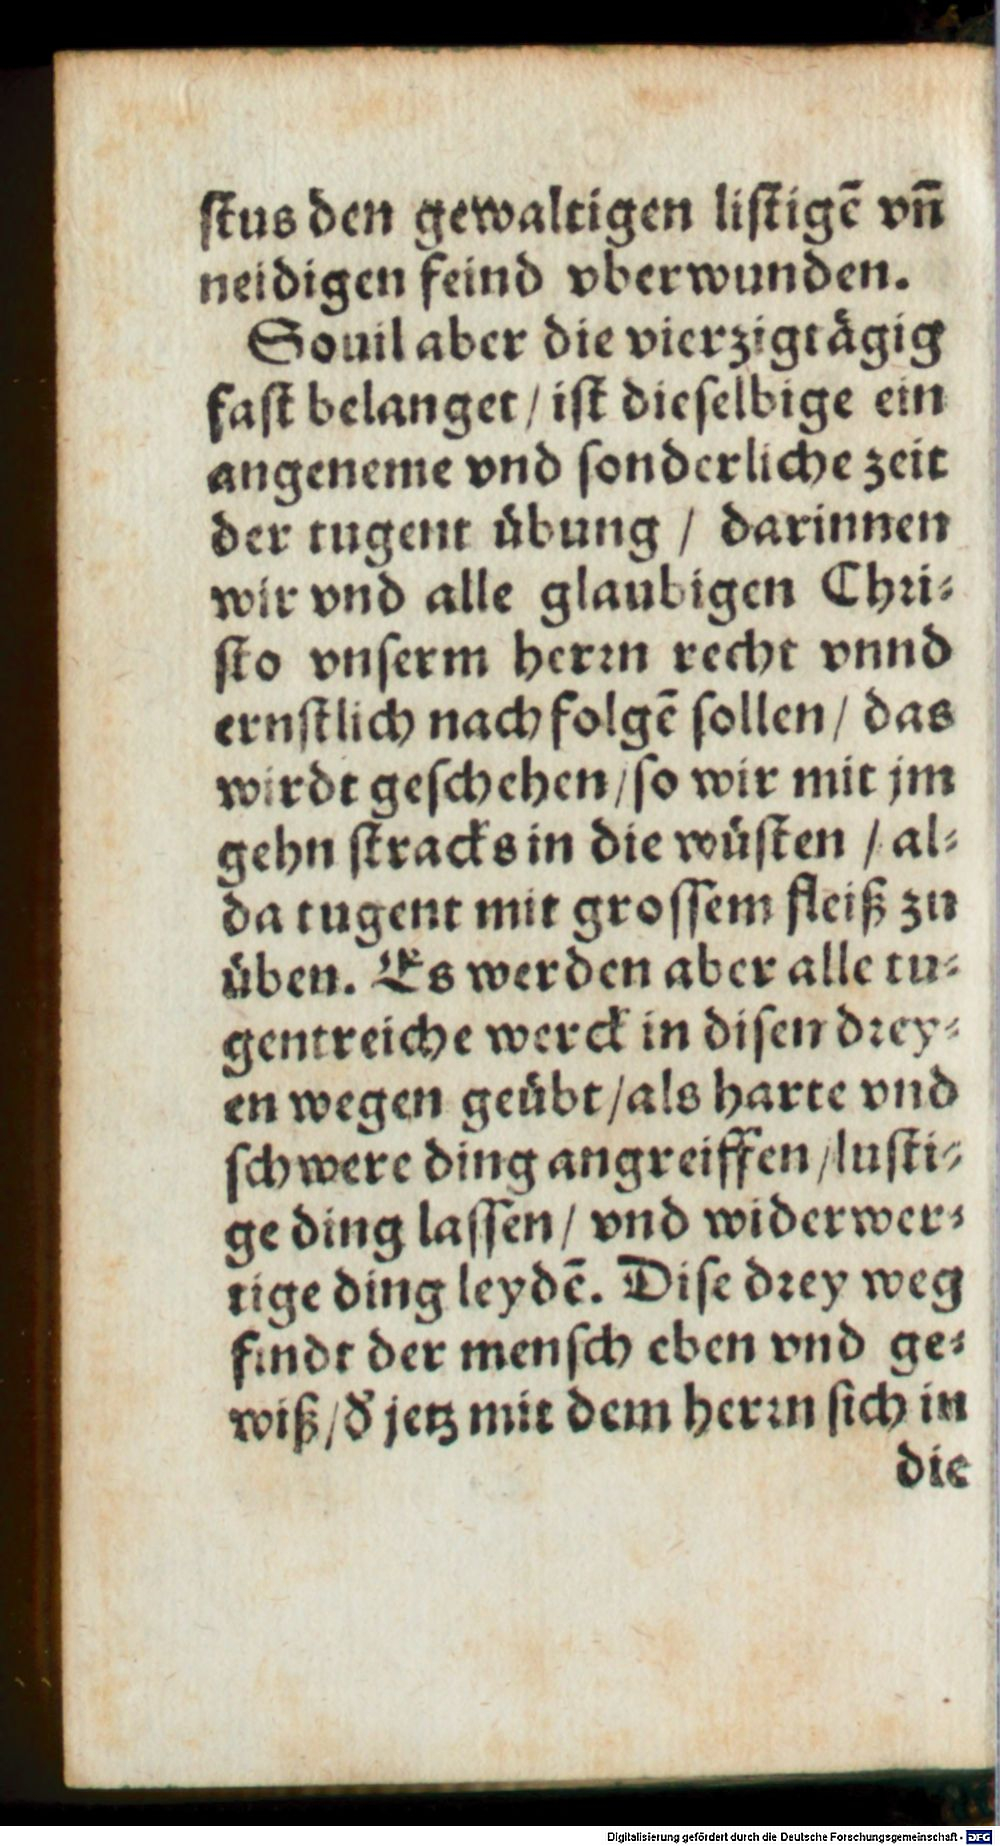 ſtus den gewaltigen liſtigē vn̄
neidigen feind vberwunden.
Souil aber die vierzigtägig
faſt belanget / iſt dieſelbige ein
angeneme vnd ſonderliche zeit
der tugent übung / darinnen
wir vnd alle glaubigen Chri⸗
ſto vnſerm herꝛn recht vnnd
ernſtlich nachfolgē ſollen / das
wirdt geſchehen / ſo wir mit jm
gehn ſtracks in die wüſten / al⸗
da tugent mit groſſem fleiß zu
üben. Es werden aber alle tu⸗
gentreiche werck in diſen dꝛey⸗
en wegen geübt / als harte vnd
ſchwere ding angreiffen / luſti⸗
ge ding laſſen / vnd widerwer⸗
tige ding leydē. Diſe dꝛey weg
findt der menſch eben vnd ge⸗
wiß / d̕ jetz mit dem herꝛn ſich in
die
Digitalisierung gefördert durch die Deutsche Forschungsgemeinschaft - DFG